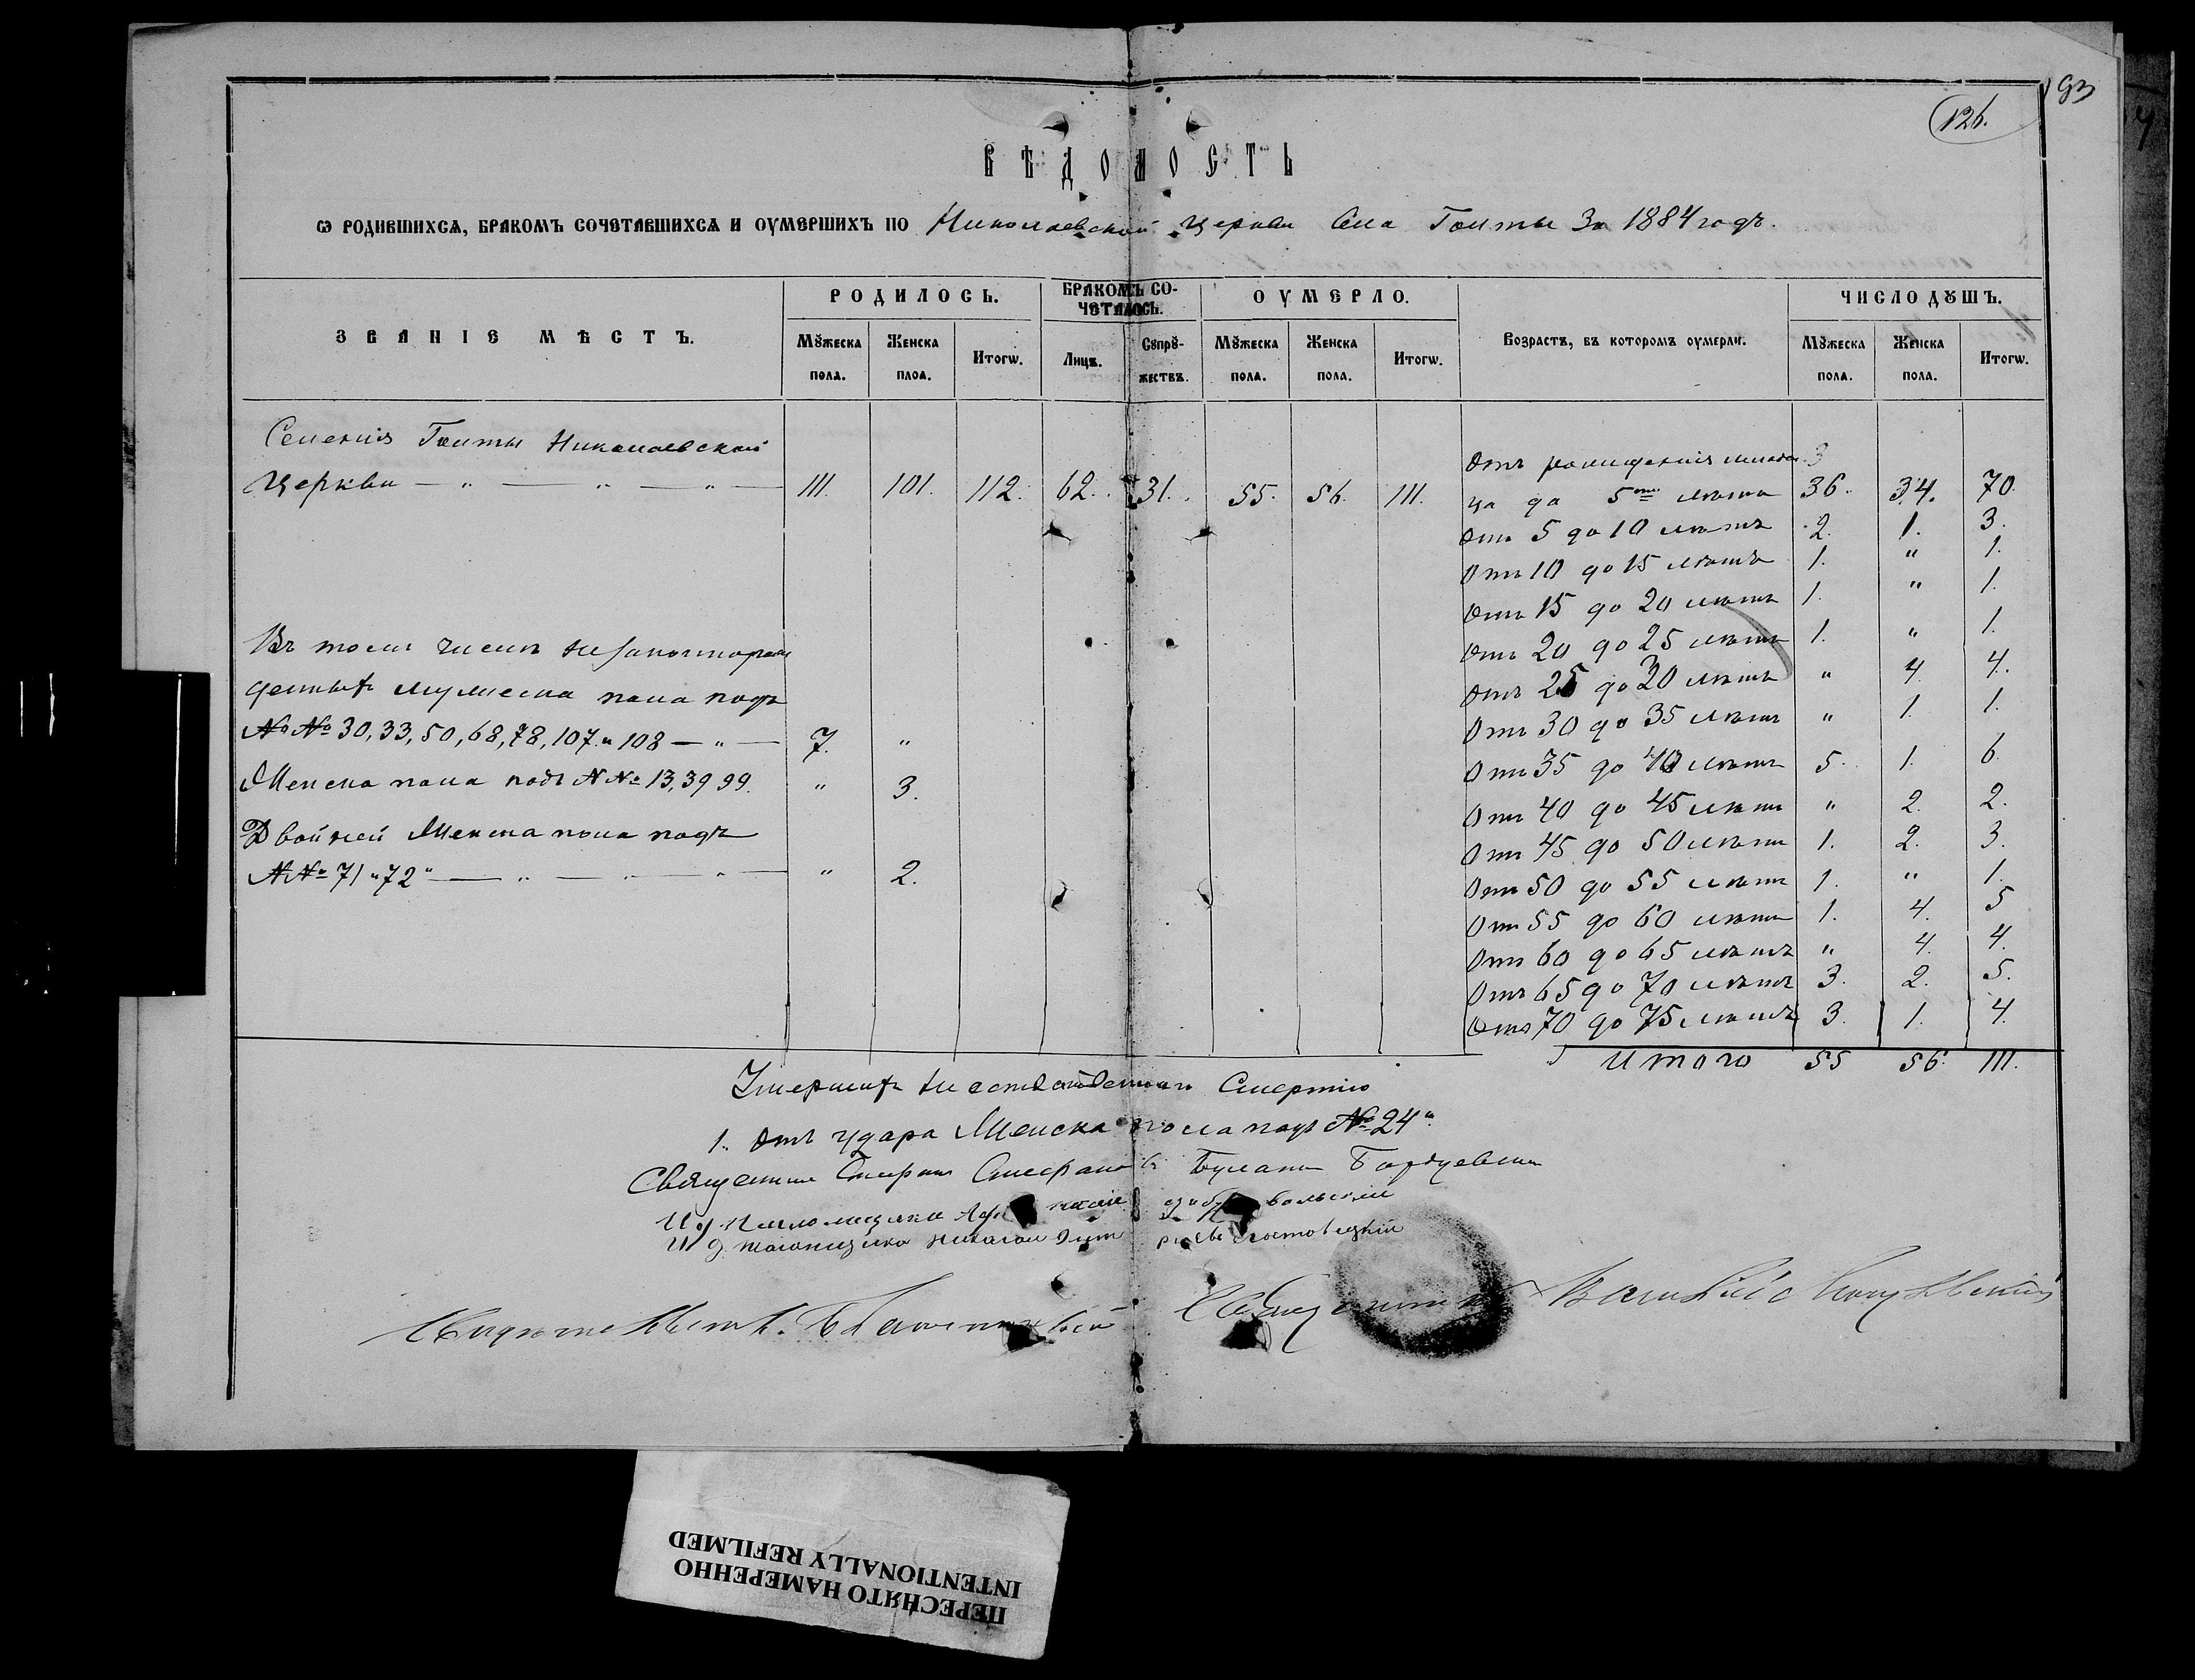 93
126.
ВѢДОМОСТЬ
Ѡ РОДИВШИХСѦ, БРАКОМЪ СОЧЕТАВШИХСѦ И ОУМЕРШИХЪ ПО Николаевской церкви Села Гоиты За 1884 годъ.
ЗВАНІЕ МѢСТЪ. РОДИЛОСЬ. БРАКОМЪ СО- ОУМЕРЛО. Возрастъ, въ которомъ оумерли. ЧИСЛО ДꙊШЪ.
ЧЕТАЛОСЬ.
Мꙋжеска Женска Итогѡ. Лицъ. Сꙋпрꙋ- Мꙋжеска Женска Итогѡ. Мꙋжеска Женска Итогѡ.
пола. плоа. жествъ. пола. пола. пола. пола.
Селенія Гоиты Николаевской
Церкви — " — " — " — 111. 101. 112. 62. 31. 55. 56. 111.
Отъ рожденія
до 5 лѣтъ 36. 34. 70.
Отъ 5 до 10 лѣтъ 2. 1. 3.
Отъ 10 до 15 лѣтъ 1. " 1.
Отъ 15 до 20 лѣтъ 1. " 1.
Отъ 20 до 25 лѣтъ 1. " 1.
Отъ 25 до 30 лѣтъ " 4. 4.
Отъ 30 до 35 лѣтъ " 1. 1.
Отъ 35 до 40 лѣтъ 5. 1. 6.
Отъ 40 до 45 лѣтъ " 2. 2.
Отъ 45 до 50 лѣтъ 1. 2. 3.
Отъ 50 до 55 лѣтъ 1. " 1.
Отъ 55 до 60 лѣтъ 1. 4. 5
Отъ 60 до 65 лѣтъ " 4. 4.
Отъ 65 до 70 лѣтъ 3. 2. 5.
Отъ 70 до 75 лѣтъ 3. 1. 4.
Итого 55 56. 111.
Въ томъ числѣ незаконнорож
денныхъ мужеска пола подъ
№№ 30, 33, 50, 68, 78, 107 и 108 — " — 7. "
Женска пола подъ №№ 13, 39 99. " 3.
Двойней Женска пола подъ
№№ 71 и 72 — " — " — " — " 2.
Умершихъ неестественною Смертію
1. Отъ удара Женска пола подъ № 24
Священникъ
И. д. Псаломщика
И д. Николай
Священникъ
ПЕРЕСНЯТО НАМЕРЕННО
INTENTIONALLY REFILMED